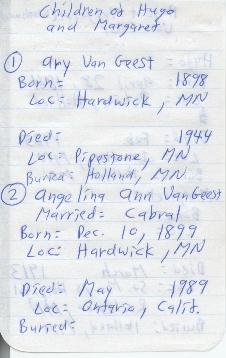 Children of Hugo
and Margaret
① Ary Van Geest
Born: 1898
Loc: Hardwick, MN
Died: 1944
Loc: Pipestone, MN
Buried: Holland, MN
② Angeline Ann VanGeest
Married: Cabral
Born: Dec. 10, 1899
Loc: Hardwick, MN
Died: May 1989
Loc: Ontario, Calif.
Buried: